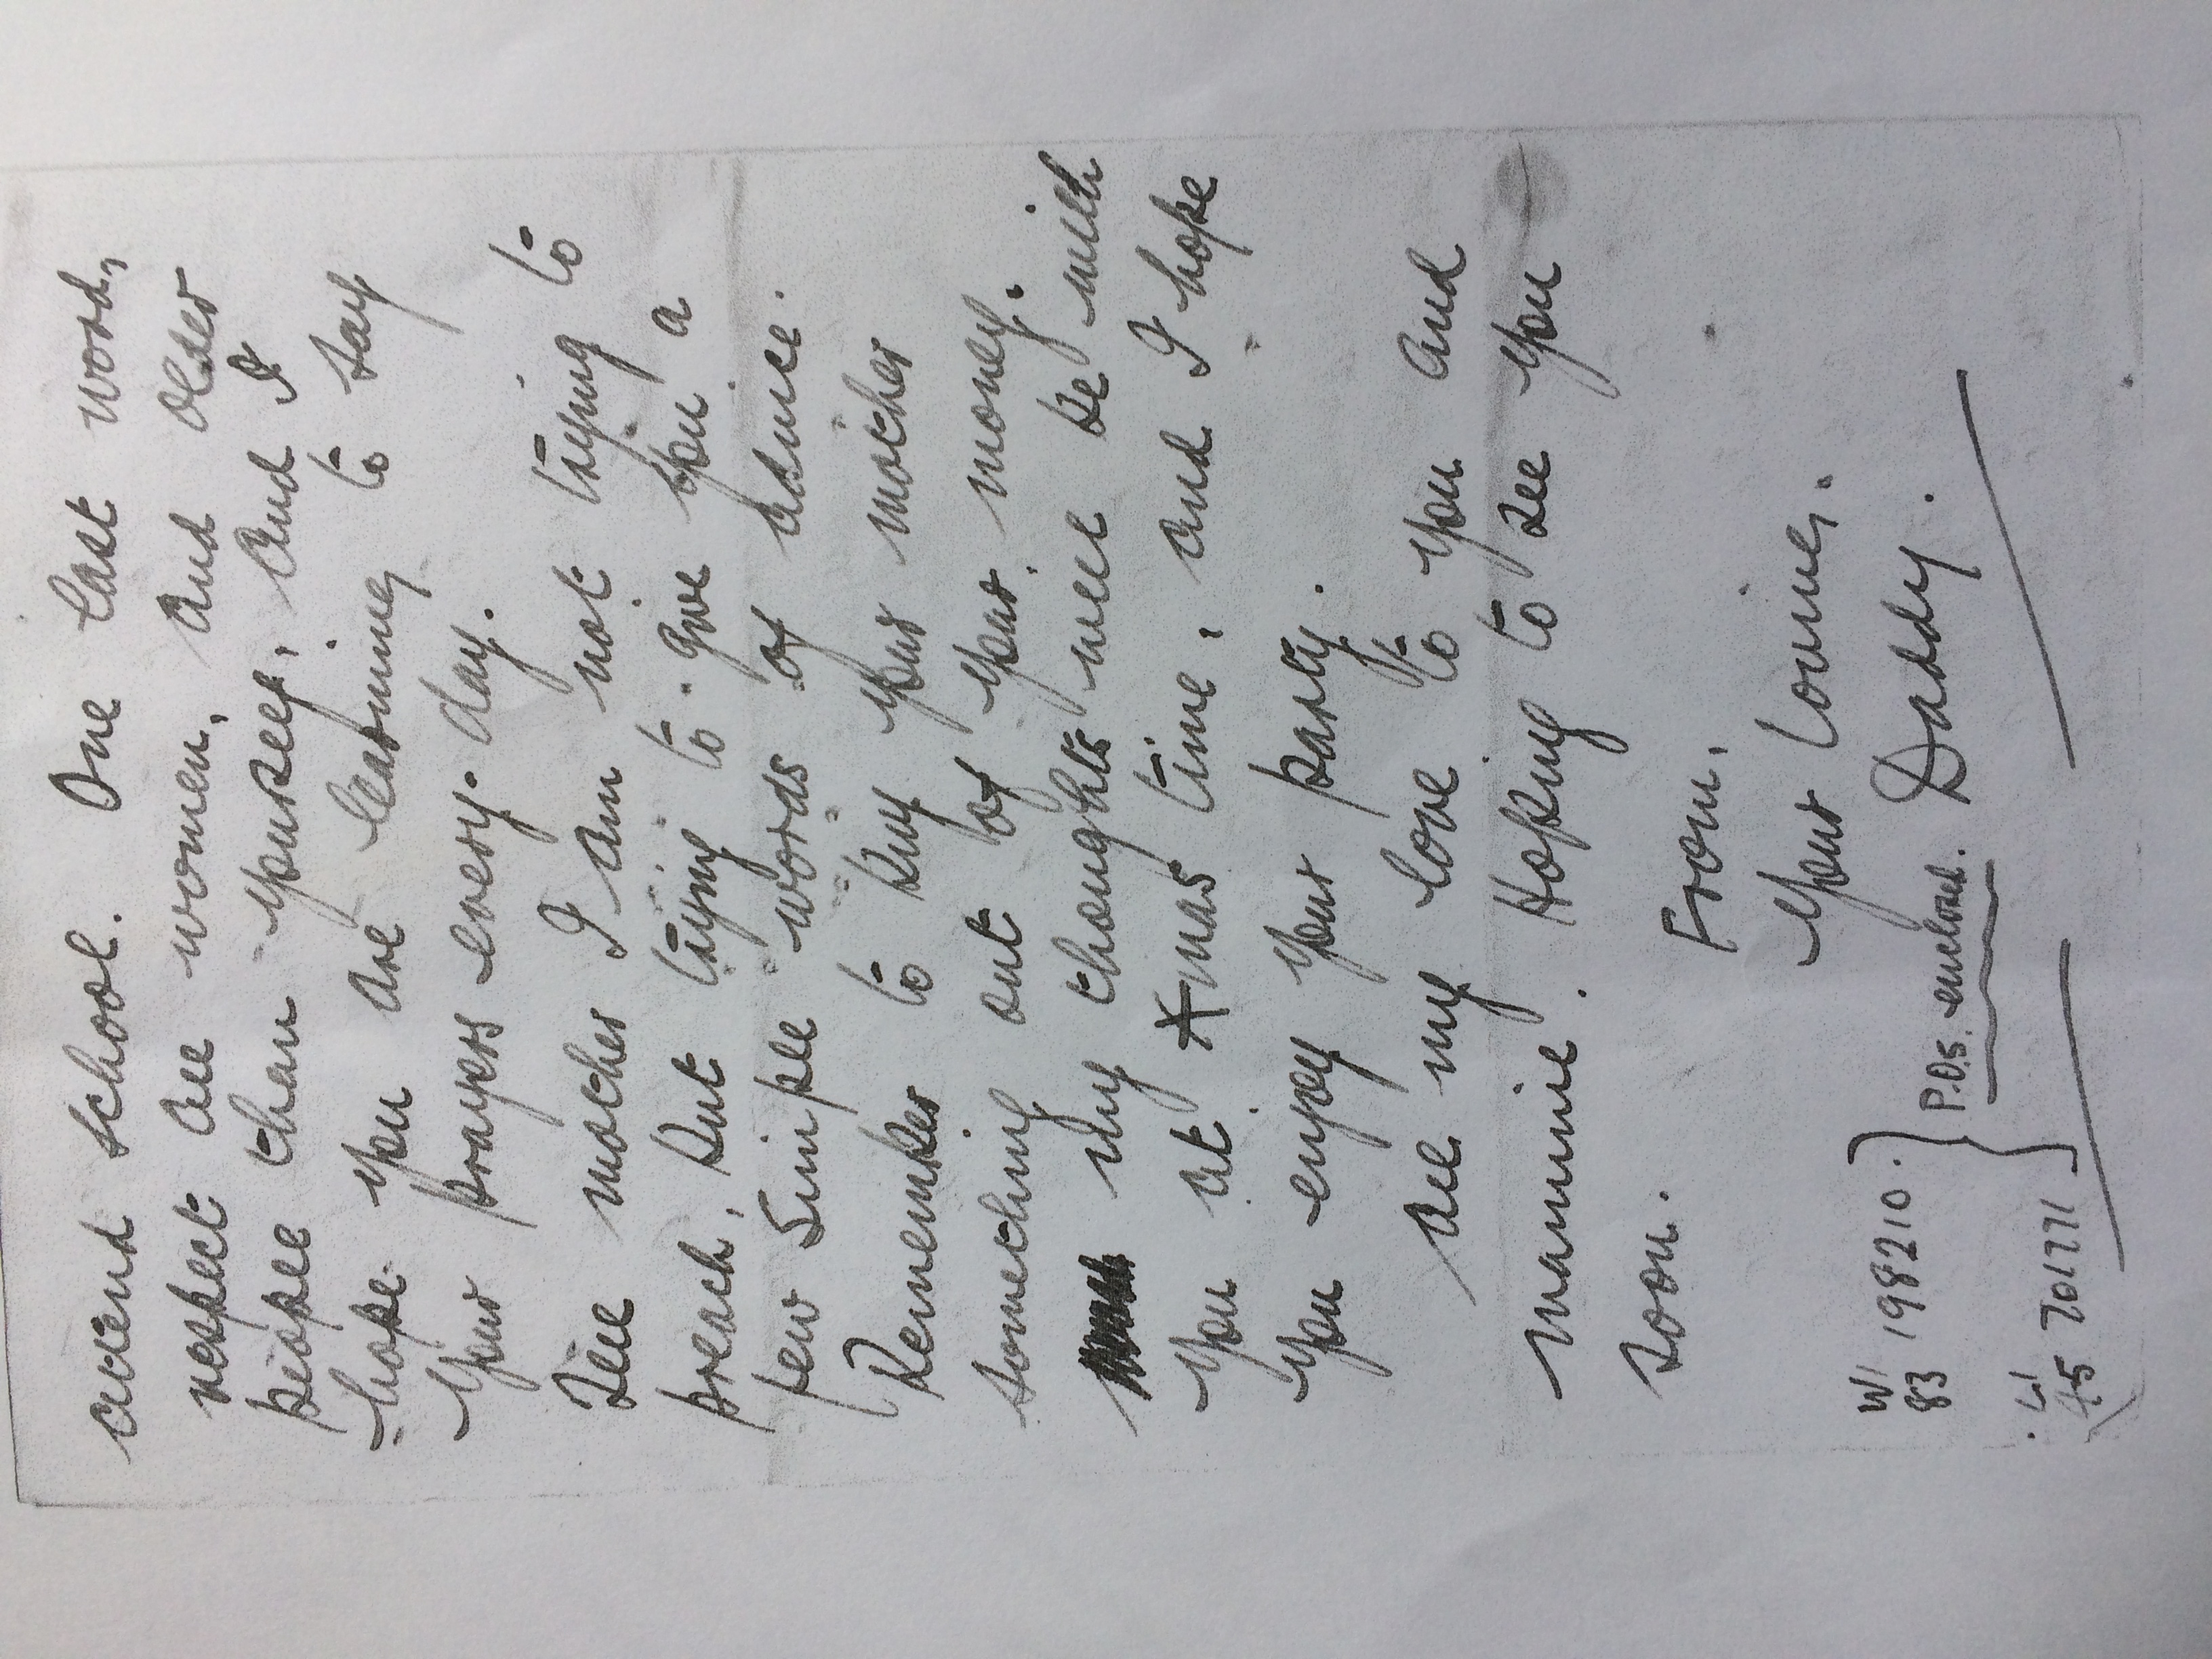 attend school. One last word,
respect all women, and older
people than yourself, and I
hope you are learning to say
your prayers every day.
Tell mother I am not trying to
preach, but trying to give you a
few simple words of advice.
Remember to buy your mother
something out of your money.
my thoughts will be with
you at Xmas time, and I hope
you enjoy your party.
All my love to you and
mammie. Hoping to see you
soon.
From,
Your loving,
Daddy.
W/83 198210. } P.O.s. enclosed.
701771